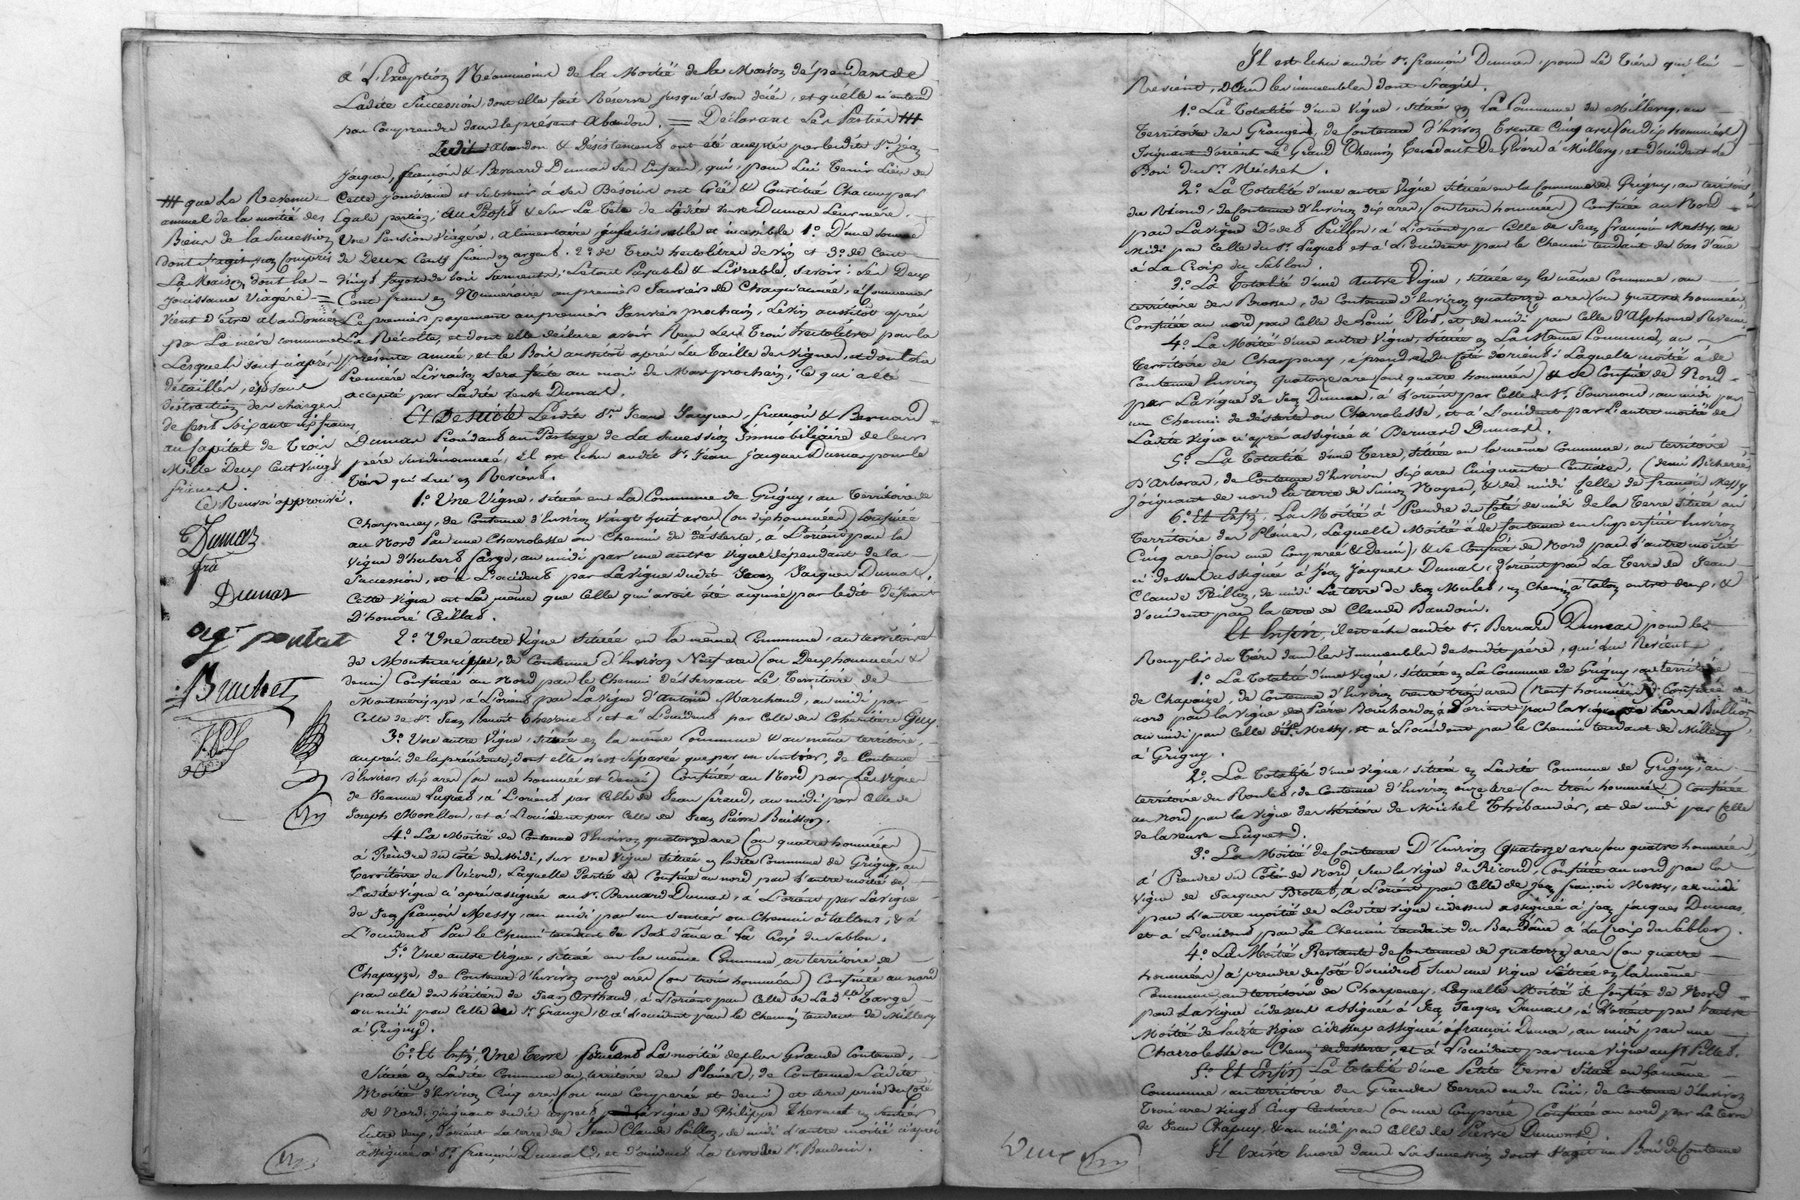 à L'Exception Néanmoins de la Moitié de la Maison dépendant de
Ladite Succession, dont elle fait Réserve jusqu'à son décès, et qu'elle n'entend
pas Comprendre dans le présent Abandon. = Déclarant Les Parties
Ledit abandon & désistement ont été acceptés par lesdits Srs Jean
Jacques, françois & Bernard Dumas ses Enfans, qui, pour Lui Tenir Lieu de
Cette jouissance et subvenir à ses Besoins ont Créé & Constitué Chacun par
Egale portion, au Profit & sur La Tête de Ladite veuve Dumas Leur mère,
Une Pension Viagère, alimentaire, insaisissable 1o D'une somme
de Deux Cents francs en argent. 2o de Trois hectolitres de vin et 3o de Cent
vingt fagots de bois sarments, Le tout Payable & Livrable, Savoir: Les Deux
Cent francs en Numéraire au premier Janvier de Chaque année, à Commencer
Le premier payement au premier Janvier prochain, Le vin aussitôt après
La Récolte, et dont elle déclare avoir Reçu Les Trois hectolitres pour la
présente année, et le Bois aussitôt après La Taille des vignes, et dont la
Première Livraison sera faite au mois de Mars prochain; Ce qui a été
accepté par Ladite veuve Dumas.
que Le Revenu
annuel de la moitié des
Biens de la Succession
dont s'agit non Compris
La Maison dont la
jouissance Viagère
vient d'être abandonnée
par La mère commune
Lesquels sont ci après
détaillés, est sauf
distraction des charges
de Cent Soixante francs
au Capital de Trois
Mille Deux Cent vingt
francs.
Ce Renvoi approuvé.
Dumas
fra
Dumas
Bruchet
Et De suite Lesdits Srs Jean Jacques, françois & Bernard
Dumas Procédant au Partage de La Succession Immobiliaire de leur
père susdénommé, Il est Echu audit Sr Jean Jacques Dumas pour le
Tiers qui Lui en Revient.
1o Une Vigne, située en La Commune de Grigny, au Territoire de
Charpeney, de Contenue d'Environ Vingt huit ares (ou dix hommées) Confinée
au Nord Par une Charrolesse ou Chemin de desserte, à L'orient par la
Vigne d'hubert, au midi par une autre vigne dépendant de la
Succession, et à L'occident par La vigne dudit Jean Jacques Dumas,
Cette Vigne est La même que Celle qui avoit été acquise par ledit Défunt
D'honoré Caillas.
2o Une autre Vigne Située en la même Commune, au territoire
de Montmerippe, de Contenue d'Environ Neuf ares (ou Deux hommées &
demi) Confinée au Nord par le Chemin desservant Le Territoire de
Montmerippe, à L'orient par La Vigne d'Antoine Marchand, au midi par
Celle de Sr Jean Benoit Thevenet, et à L'occident par Celle des Cohéritiers Guy.
3o Une autre Vigne, Située en la même Commune & au même territoire,
auprès de la précédente, dont elle n'est Séparée que par un Sentier, de Contenue
d'Environ six ares (ou une hommée et demi) Confinée au Nord par La Vigne
de Jeanne Luques, à L'orient par Celle de Jean Seraud, au midi par Celle de
Joseph Morellon, et à L'occident par Celle de Jean Pierre Buisson.
4o La Moitié de Contenue d'Environ quatorze ares (ou quatre hommées)
à Prendre du Coté de Midi, sur une Vigne Située en ladite Commune de Grigny, au
Territoire du Ricoud, Laquelle Partie se Confine au nord par L'autre moitié de
Ladite Vigne ci après assignée au Sr Bernard Dumas, à L'orient par La Vigne
de Jean françois Messy, au midi par un Sentier ou Chemin à talon, & à
L'occident Par Le Chemin tendant de Bas d'âne à La Croix du Sablon.
5o Une autre Vigne, située en la même Commune au territoire de
Chapayze, de Contenue d'Environ onze ares (ou trois hommées) Confinée au nord
par celle des héritiers de Jean Orthaud, à L'orient par Celle de La dlle Targe
au midi par Celle de Sr Grange, & à L'occident par le Chemin tendant de Millery
à Grigny.
6o Et Enfin Une Terre, faisant La moitié de plus Grande Contenue,
Située en Ladite Commune au territoire des Plaines, de Contenue Ladite
Moitié d'Environ Cinq ares (ou une Couperée et demi) et sera prise du Coté
de Nord, joignant dudit aspect La vigne de Philippe Thevenet un Sentier
Entre deux, d'orient La terre de Jean Claude Peillon, de midi L'autre moitié ci après
assignée à Sr françois Dumas, et d'occident La terre de Sr Baudoin.
Il est Echu audit Sr françois Dumas, pour Le Tiers qui lui
Revient, Dans les immeubles dont s'agit.
1o La Totalité d'une Vigne, située en La Commune de Millery, au
Territoire des Granges, de Contenue d'Environ Trente Cinq ares (ou dix hommées)
Joignant d'orient Le Grand Chemin Tendant De Givors à Millery, et d'occident Le
Bois du Sr Michel.
2o La Totalité d'une autre Vigne située en la Commune de Grigny, au territoire
du Ricoud, de Contenue d'Environ dix ares (ou trois hommées) Confinée au Nord
par La vigne d'odet Peillon, à L'orient par Celle de Jean françois Messy, au
Midi par Celle du Sr Luques et à L'occident par le Chemin tendant de bas d'âne
à La Croix du Sablon.
3o La Totalité d'une Autre Vigne, située en la même Commune, au
territoire des Brosses, de Contenue d'Environ quatorze ares (ou quatre hommées)
Confinée au nord par Celle de Louis Ros, et de midi par Celle D'Alphonse
4o La Moitié d'une autre Vigne, située en La Même Commune, au
Territoire de Charpeney, à prendre du Coté d'orient; Laquelle moitié a de
Contenue Environ quatorze ares (ou quatre hommées) & se Confine de Nord
par La vigne de Jean Dumas, à L'orient par Celle de Sr Fournond, au midi par
un Chemin de désserte ou Charrolesse, et à L'occident par L'autre moitié de
Ladite Vigne ci après assignée à Bernard Dumas.
5o La Totalité d'une Terre située en la même Commune, au territoire
D'Arboras, de Contenue d'Environ six ares Cinquante Centiares, (demi Bicherée)
Joignant de nord La terre de Simon Noyer, & de midi Celle de françois Messy
6o Et Enfin, La Moitié à Prendre du Coté de midi de La Terre située au
Territoire des Plaines, Laquelle Moitié a de Contenue en Superficie Environ
Cinq ares (ou une Couperée & demi), & se Confine de Nord par L'autre moitié
ci dessus assignée à Jean Jacques Dumas, d'orient par La Terre de Jean
Claude Peillon, de midi La terre de Jean Mulet, un Chemin à talon entre deux, &
d'occident par la terre de Claude Baudoin.
Et Enfin, il est échu audit Sr Bernard Dumas pour Le
Remplir du Tiers dans les Immeubles de sondit père, qui Lui Revient
1o La Totalité d'une Vigne, située en La Commune de Grigny, au territoire
de Chapaize, de Contenue d'Environ trente trois ares (Neuf hommées) Confinée au
nord par la Vigne de Pierre Bouchardon, d'orient par la Vigne de Pierre Bullion,
au midi par Celle de Sr Messy, et à L'occident par le Chemin tendant de Millery
à Grigny.
2o La Totalité d'une Vigne, située en Ladite Commune de Grigny, au
territoire du Roules, de Contenue d'Environ onze ares (ou trois hommées) Confinée
au nord par la Vigne des héritiers de Michel Thibaudier, et de midi par Celle
de la veuve Luques.
3o La Moitié de Contenue D'Environ Quatorze ares (ou quatre hommées)
à Prendre du Coté de Nord, Sur la Vigne du Ricoud, Confinée au nord par la
Vigne de Jacques Brottet, à L'orient par Celle de Jean françois Messy, au midi
par L'autre moitié de Ladite Vigne ci dessus assignée à Jean Jacques Dumas,
et à L'occident par Le Chemin tendant du Bas D'âne à La Croix du Sablon.
4o La Moitié Restante de Contenue de quatorze ares (ou quatre
hommées) à prendre du Coté d'occident Sur une Vigne située en la même
Commune au territoire de Charpeney, Laquelle Moitié se Confine de Nord
par La Vigne ci dessus assignée à Jean Jacques Dumas, à L'orient par L'autre
Moitié de Ladite Vigne ci dessus assignée à françois Dumas, au midi par une
Charrolesse ou Chemin de desserte, et à L'occident par une Vigne au Sr Pillet.
5o Et Enfin La Totalité d'une Petite Terre Située en la même
Commune, au territoire des Grandes Terres ou du Cuis, de Contenue d'Environ
Trois ares vingt Cinq Centiares (ou une Couperée) Confinée au nord par La terre
de Jean Chapuy, & au midi par Celle de Pierre Dumond.
Il Existe Encore dans La Succession dont s'agit un Bois de Contenue